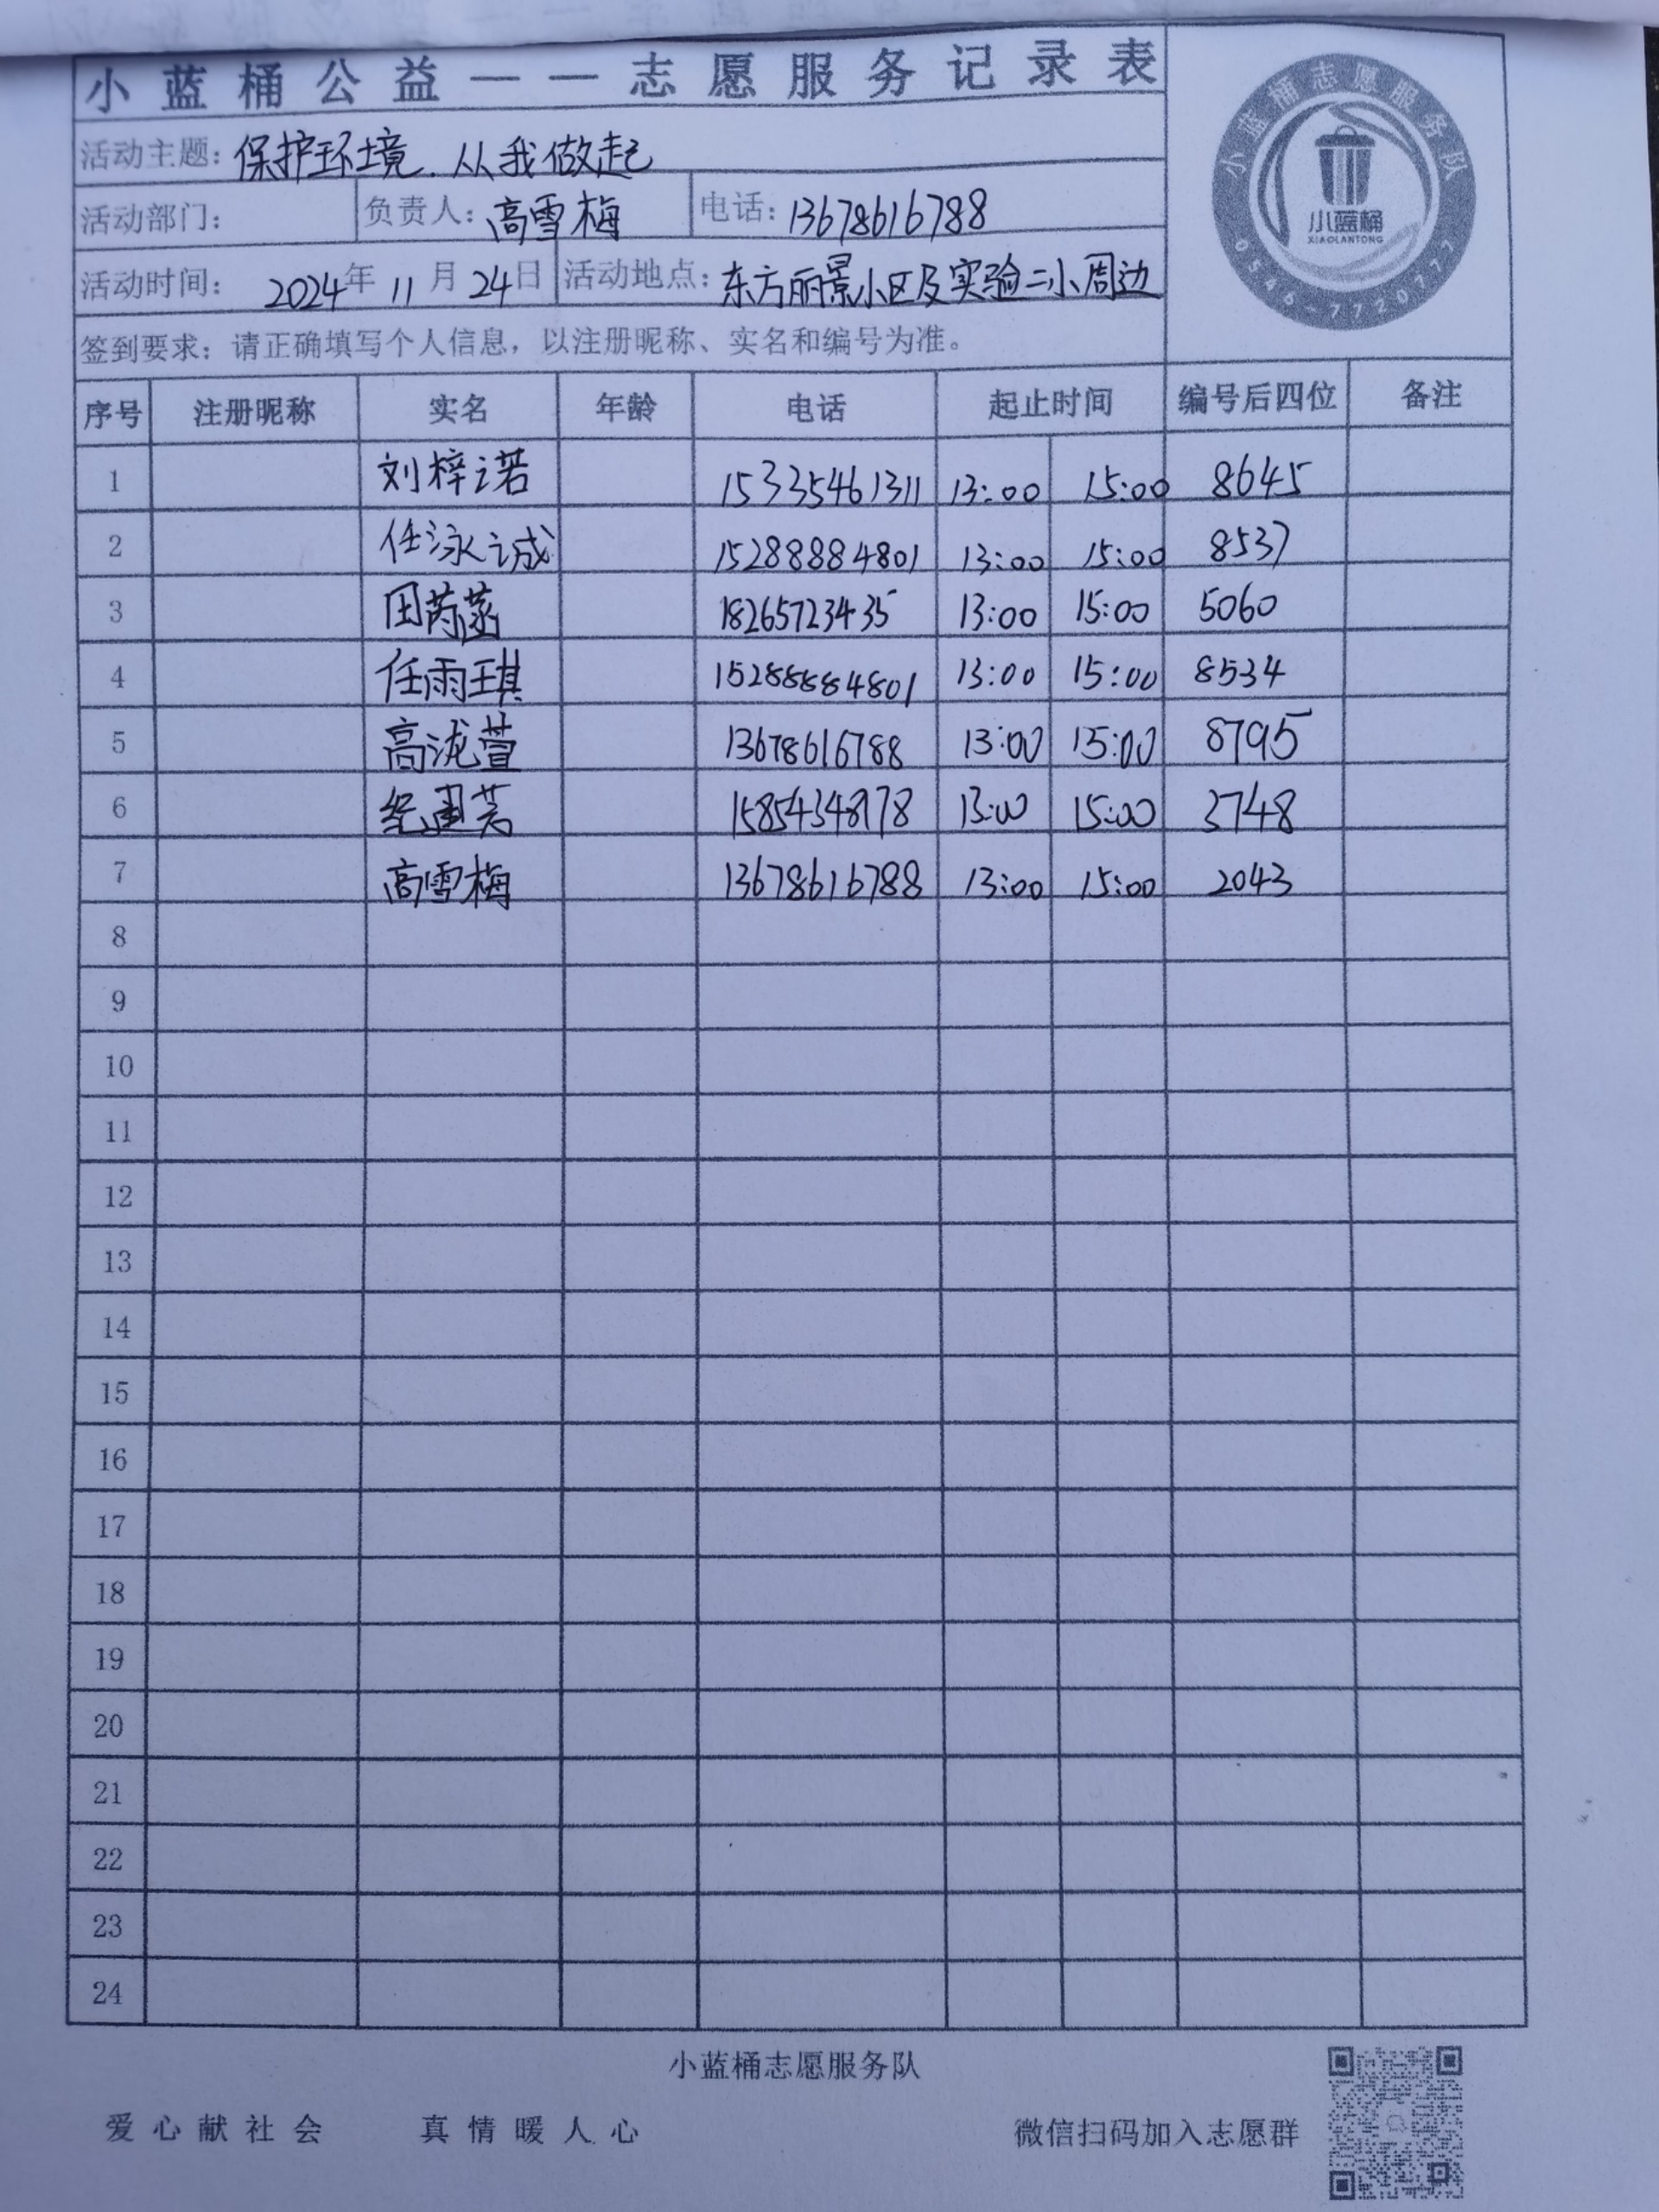 小蓝桶公益——志愿服务记录表
小蓝桶志愿服务队
小蓝桶
XIAOLANTONG
0546-7720777
活动主题：保护环境.从我做起
活动部门： 负责人：高雪梅 电话：13678616788
活动时间：2024年11月24日 活动地点：东方丽景小区及实验二小周边
签到要求：请正确填写个人信息，以注册昵称、实名和编号为准。
序号 注册昵称 实名 年龄 电话 起止时间 编号后四位 备注
1 刘梓诺 15335461311 13:00 15:00 8645
2 任泳诚 15288884801 13:00 15:00 8537
3 田芮菡 18265723435 13:00 15:00 5060
4 任雨琪 15288884801 13:00 15:00 8534
5 高泷萱 13678616788 13:00 15:00 8795
6 13:00 15:00 3748
7 高雪梅 13678616788 13:00 15:00 2043
8
9
10
11
12
13
14
15
16
17
18
19
20
21
22
23
24
小蓝桶志愿服务队
爱心献社会 真情暖人心 微信扫码加入志愿群